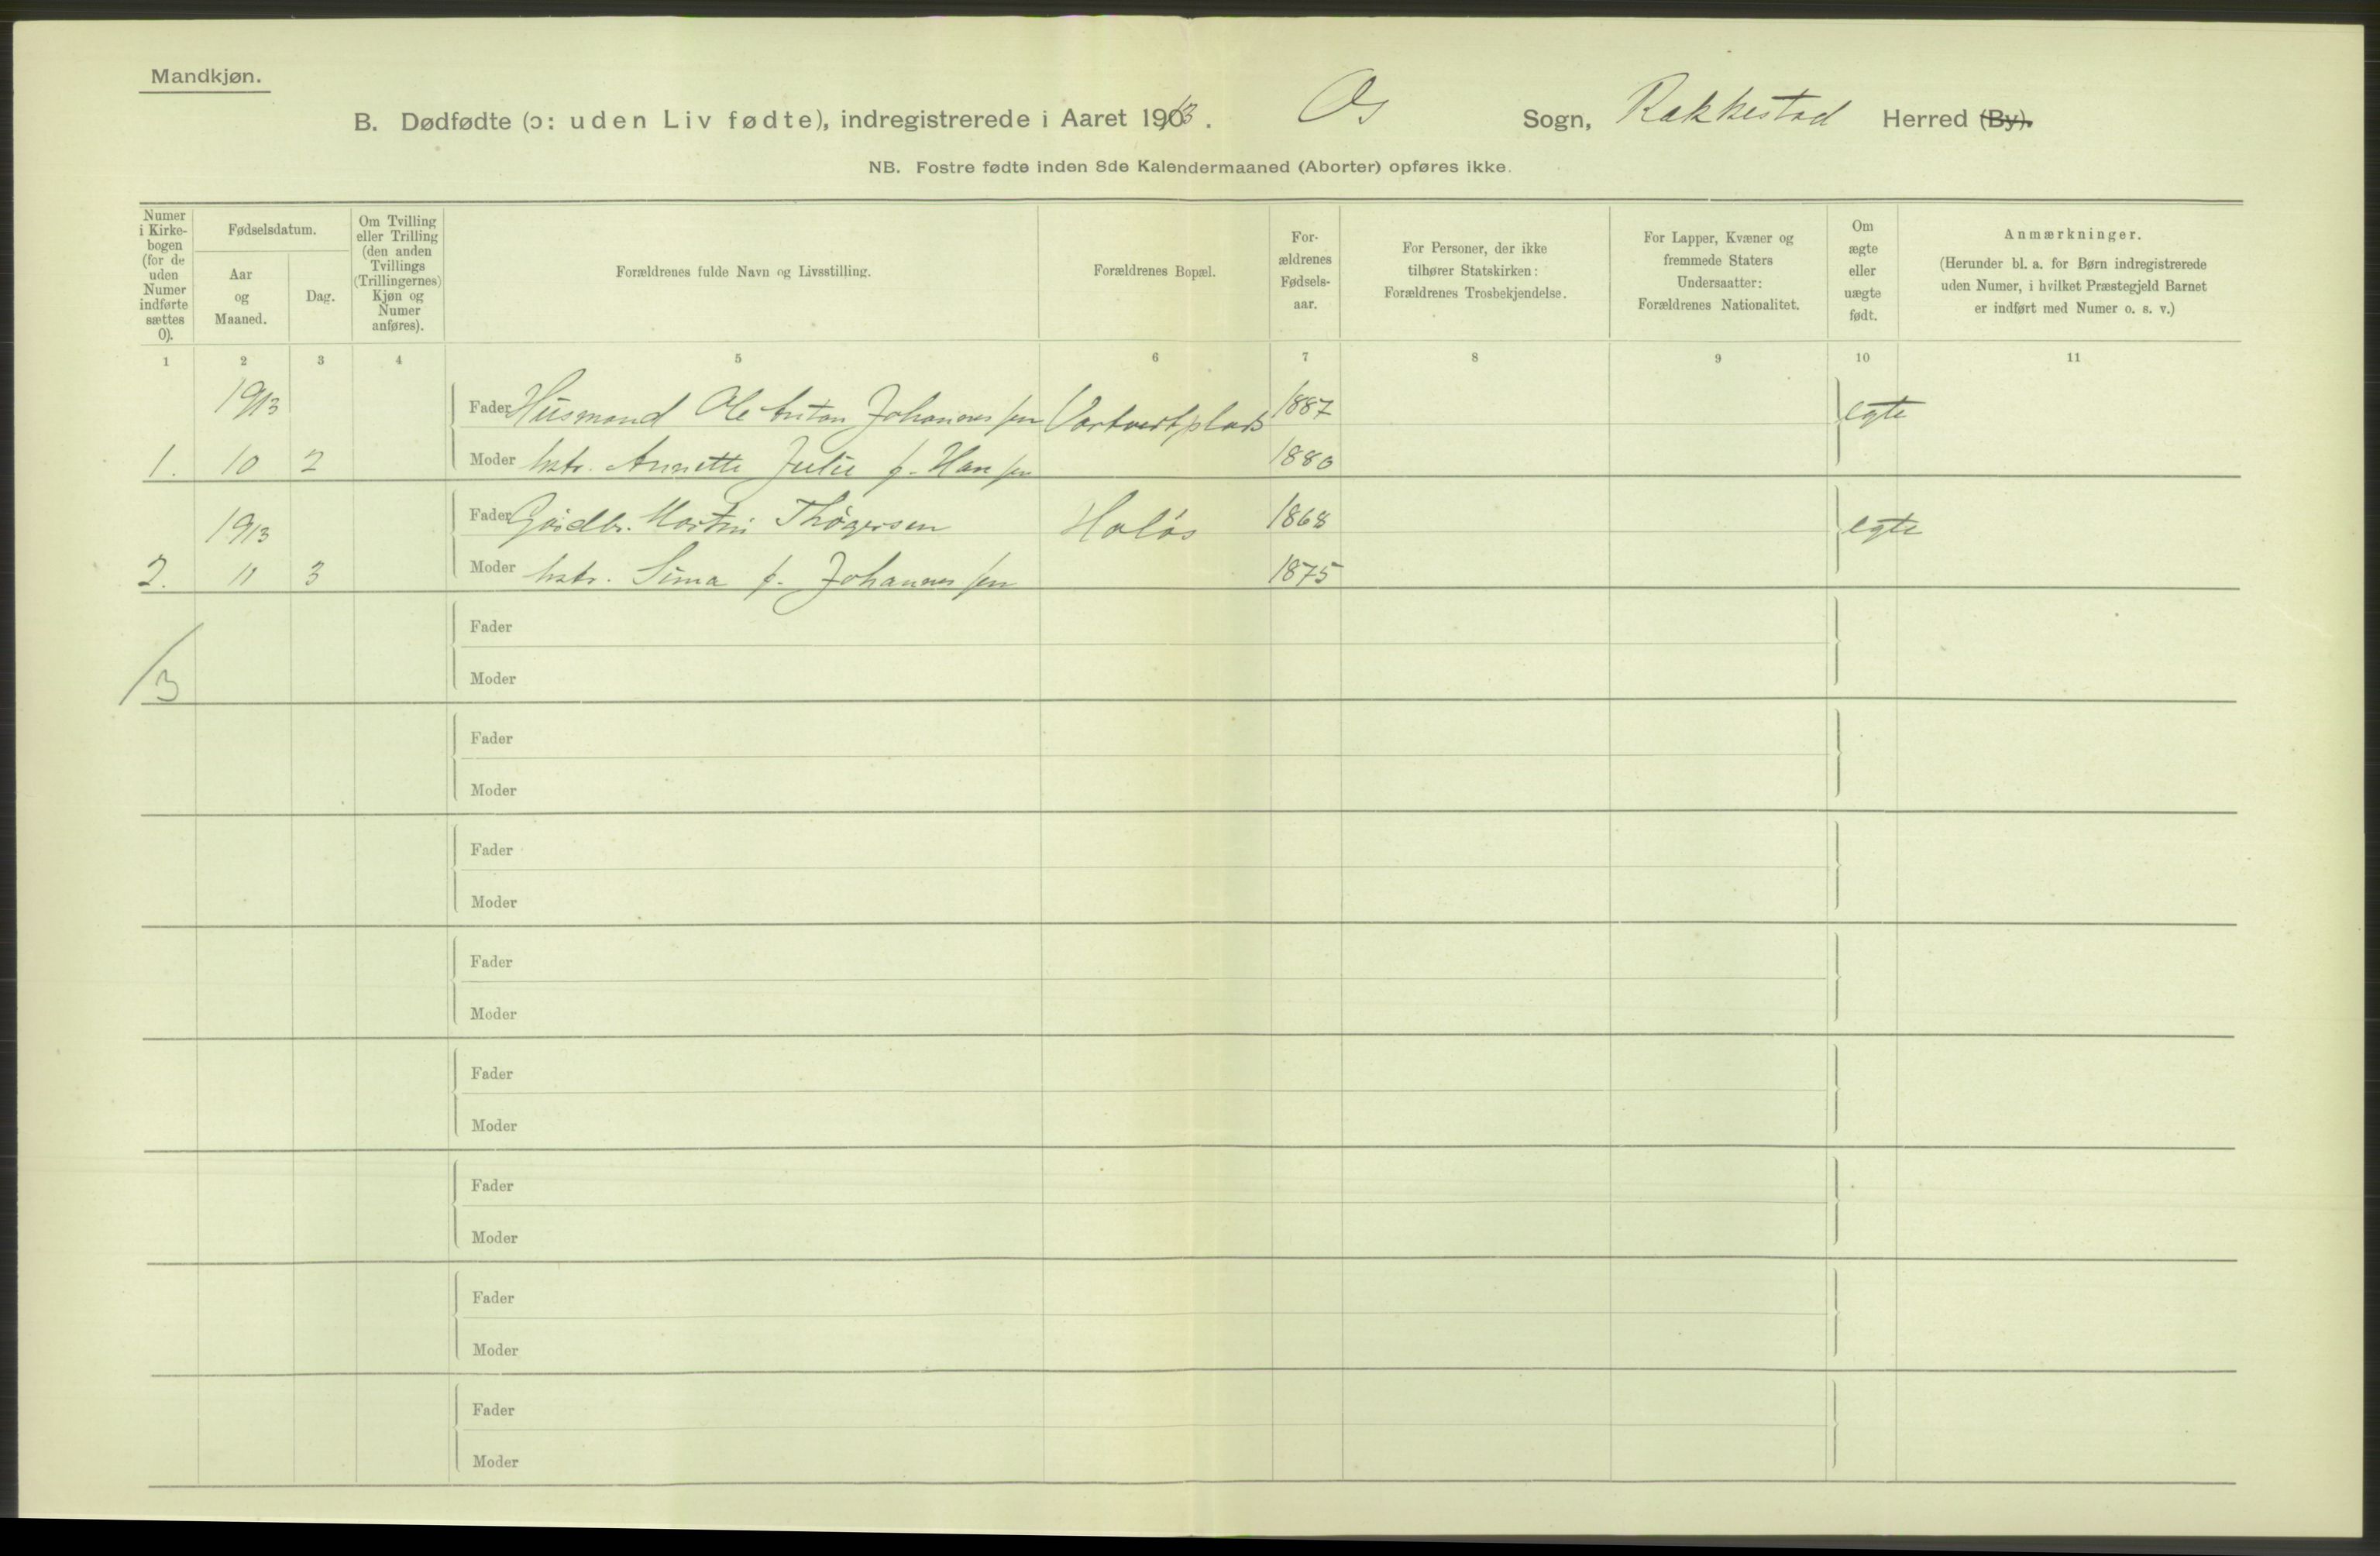 Mandkjøn.
B. Dødfødte (ɔ: uden Liv fødte), indregistrerede i Aaret 1913. Os Sogn, Rakkestad Herred (By).
NB. Fostre fødte inden 8de Kalendermaaned (Aborter) opføres ikke.
Numer
i Kirke-
bogen
(for de
uden
Numer
indførte
sættes
0).
Fødselsdatum.
Aar
og
Maaned.
Dag.
Om Tvilling
eller Trilling
(den anden
Tvillings
(Trillingernes)
Kjøn og
Numer
anføres).
Forældrenes fulde Navn og Livsstilling.
Forældrenes Bopæl.
For-
ældrenes
Fødsels-
aar.
For Personer, der ikke
tilhører Statskirken:
Forældrenes Trosbekjendelse.
For Lapper, Kvæner og
fremmede Staters
Undersaatter:
Forældrenes Nationalitet.
Om
ægte
eller
uægte
født.
Anmærkninger.
(Herunder bl. a. for Børn indregistrerede
uden Numer, i hvilket Præstegjeld Barnet
er indført med Numer o. s. v.)
1 2 3 4 5 6 7 8 9 10 11
1913 Fader Husmand Ole Anton Johannessen 1887 egte
1. 10 2 Moder hstr. Annette Julie f. Hansen 1880
1913 Fader Gårdbr. Martin Thøgersen Holøs 1868 egte
2. 11 3 Moder hstr. Sina f. Johannessen 1875
Fader
/3 Moder
Fader
Moder
Fader
Moder
Fader
Moder
Fader
Moder
Fader
Moder
Fader
Moder
Fader
Moder